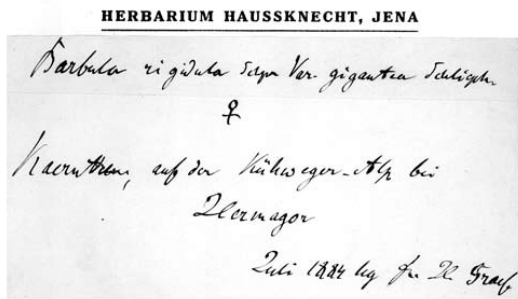 HERBARIUM HAUSSKNECHT, JENA
Barbula rigidula Schpr Var. gigantea Schlieph.
♀
Kaernthen, auf der Kühweger-Alp bei
Hermagor
Juli 1884 leg